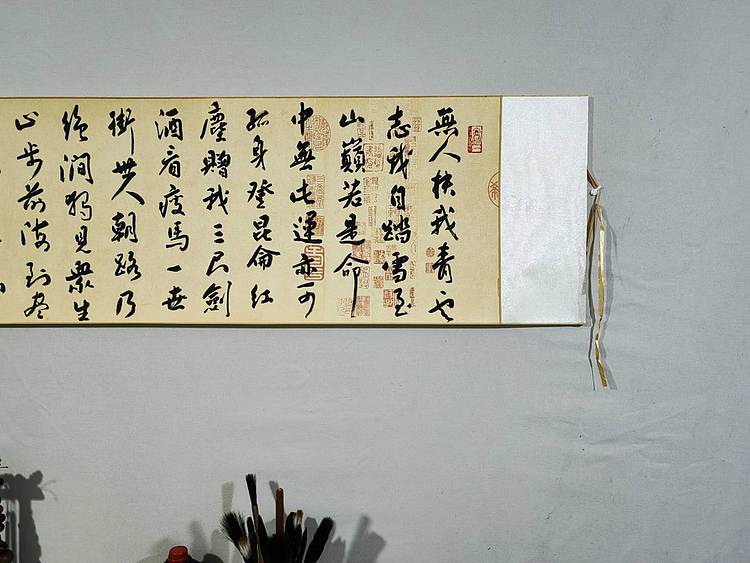 無人扶我青云
志我自踏雪至
山巔若是命
中無此運亦可
孤身登昆侖紅
塵贈我三尺劍
酒肴疲馬一世
街世人朝路乃
絕澗獨見衆生
止步前海到尽